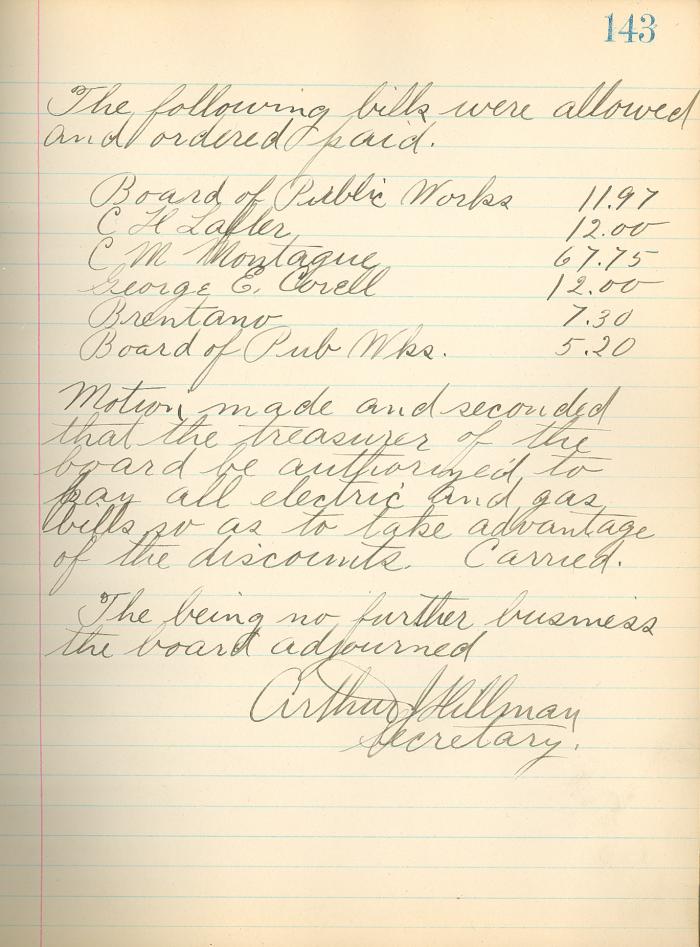 143
The following bills were allowed
and ordered paid.
Board of Public Works 11.97
C H Lafler 12.00
C M Montague 67.75
George E. Corell 12.00
Brentano 7.30
Board of Pub Wks. 5.20
Motion made and seconded
that the treasurer of the
board be authorized to
pay all electric and gas
bills so as to take advantage
of the discounts. Carried.
The being no further business
the board adjourned
Arthur J Hillman
Secretary.